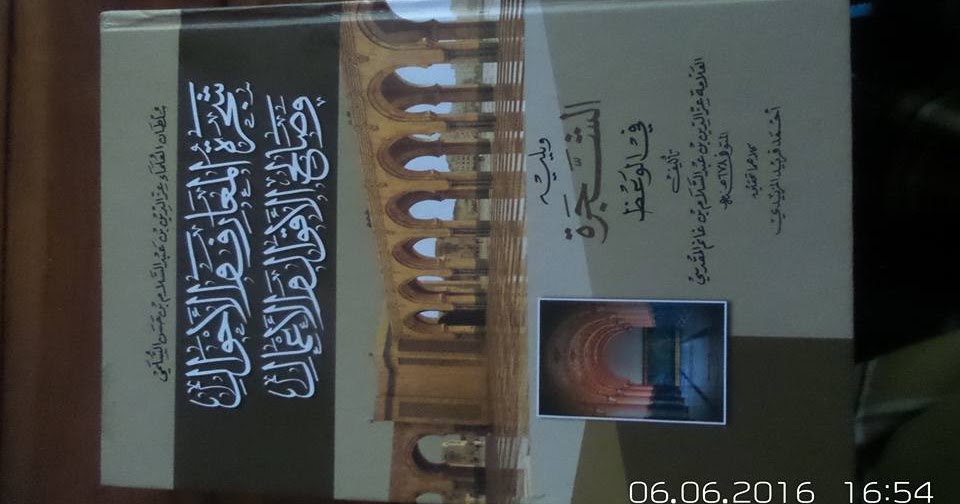 سلطان العلماء عز الدين بن عبد السلام بن حسن السلمي
شجرة المعارف والأحوال
وصالح الأقوال والأعمال
ويليه
الشجرة
في الوعظ
تأليف
العلامة عز الدين بن عبد السلام بن غانم المقدسي
المتوفى ٦٧٨ هـ
أحمد فريد المزيدي
06.06.2016 16:54